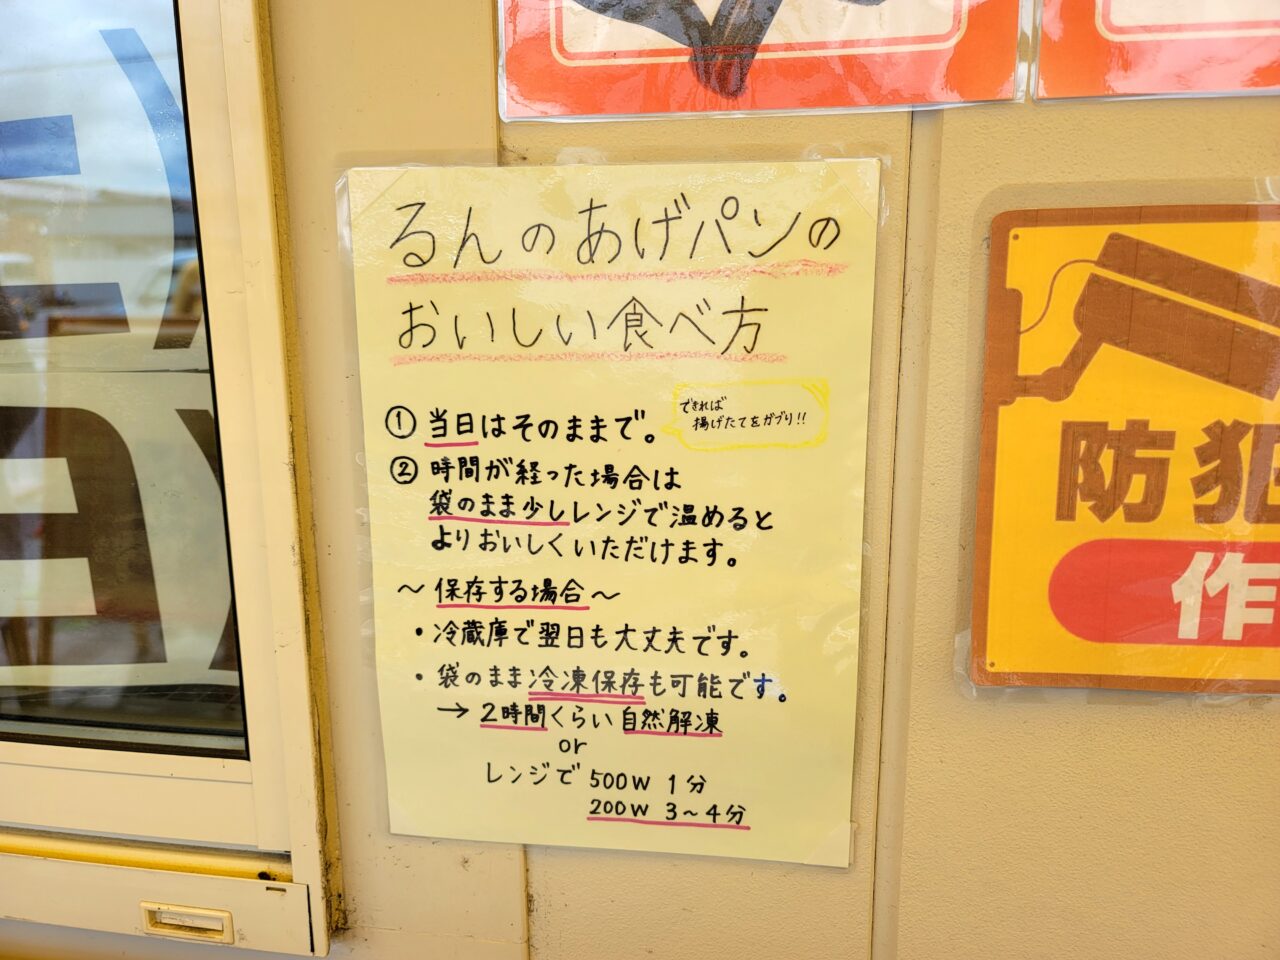 るんのあげパンの
おいしい食べ方
① 当日はそのままで。
できれば
揚げたてをガブり!!
② 時間が経った場合は
袋のまま少しレンジで温めると
よりおいしくいただけます。
〜 保存する場合 〜
・冷蔵庫で翌日も大丈夫です。
・袋のまま冷凍保存も可能です。
→ 2時間くらい自然解凍
or
レンジで 500W 1分
200W 3〜4分
防犯
作